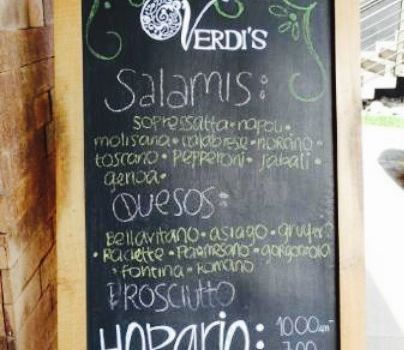 VERDI'S
Salamis:
sopressatta • napoli •
molisana • calabrese • norcino •
toscano • pepperoni • jabali •
genoa •
Quesos:
Bellavitano • asiago • gruyer
• Raclette • Parmesano • gorgonzola
• fontina • romano
PROSCIUTTO
HORARIO: 10:00 am
7:00